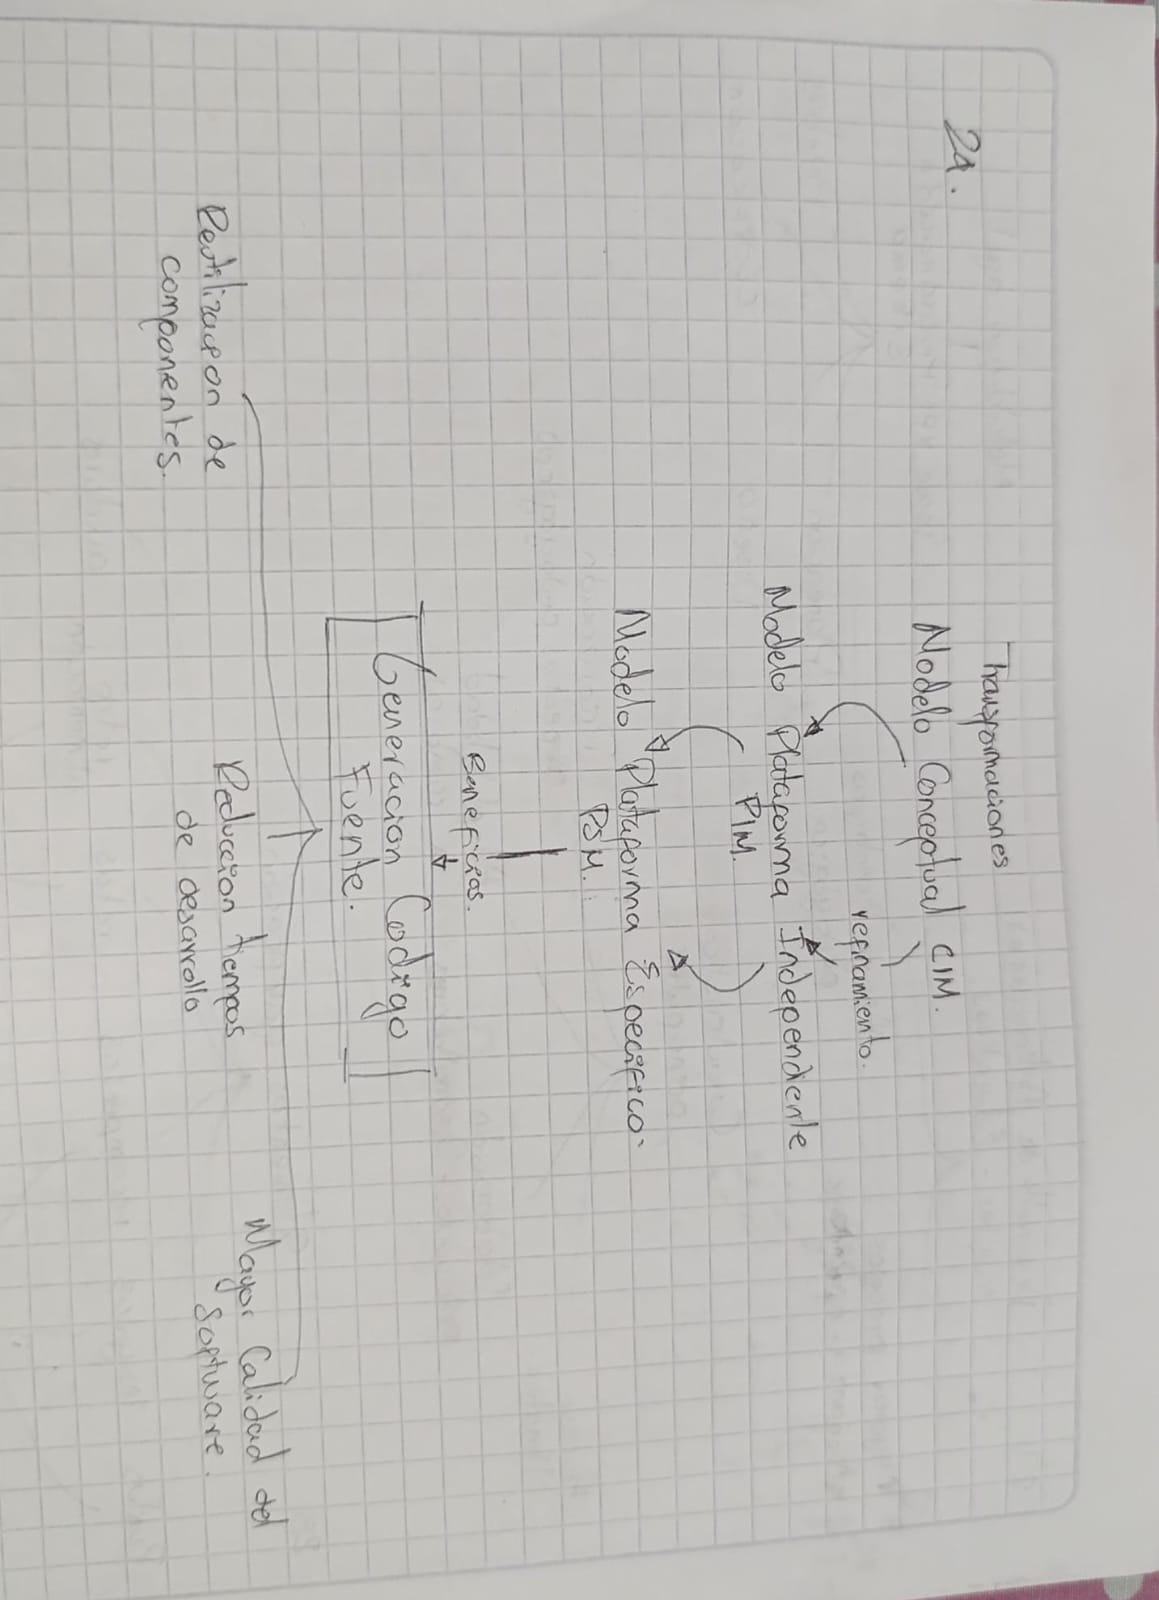 24.
Transformaciones
Modelo Conceptual CIM.
refinamiento.
Modelo Plataforma Independiente
PIM.
Modelo Plataforma Especifico.
PSM.
Beneficios.
Generacion Codigo
Fuente.
Reutilizacion de
componentes.
Reduccion tiempos
de desarrollo
Mayor Calidad del
Software.